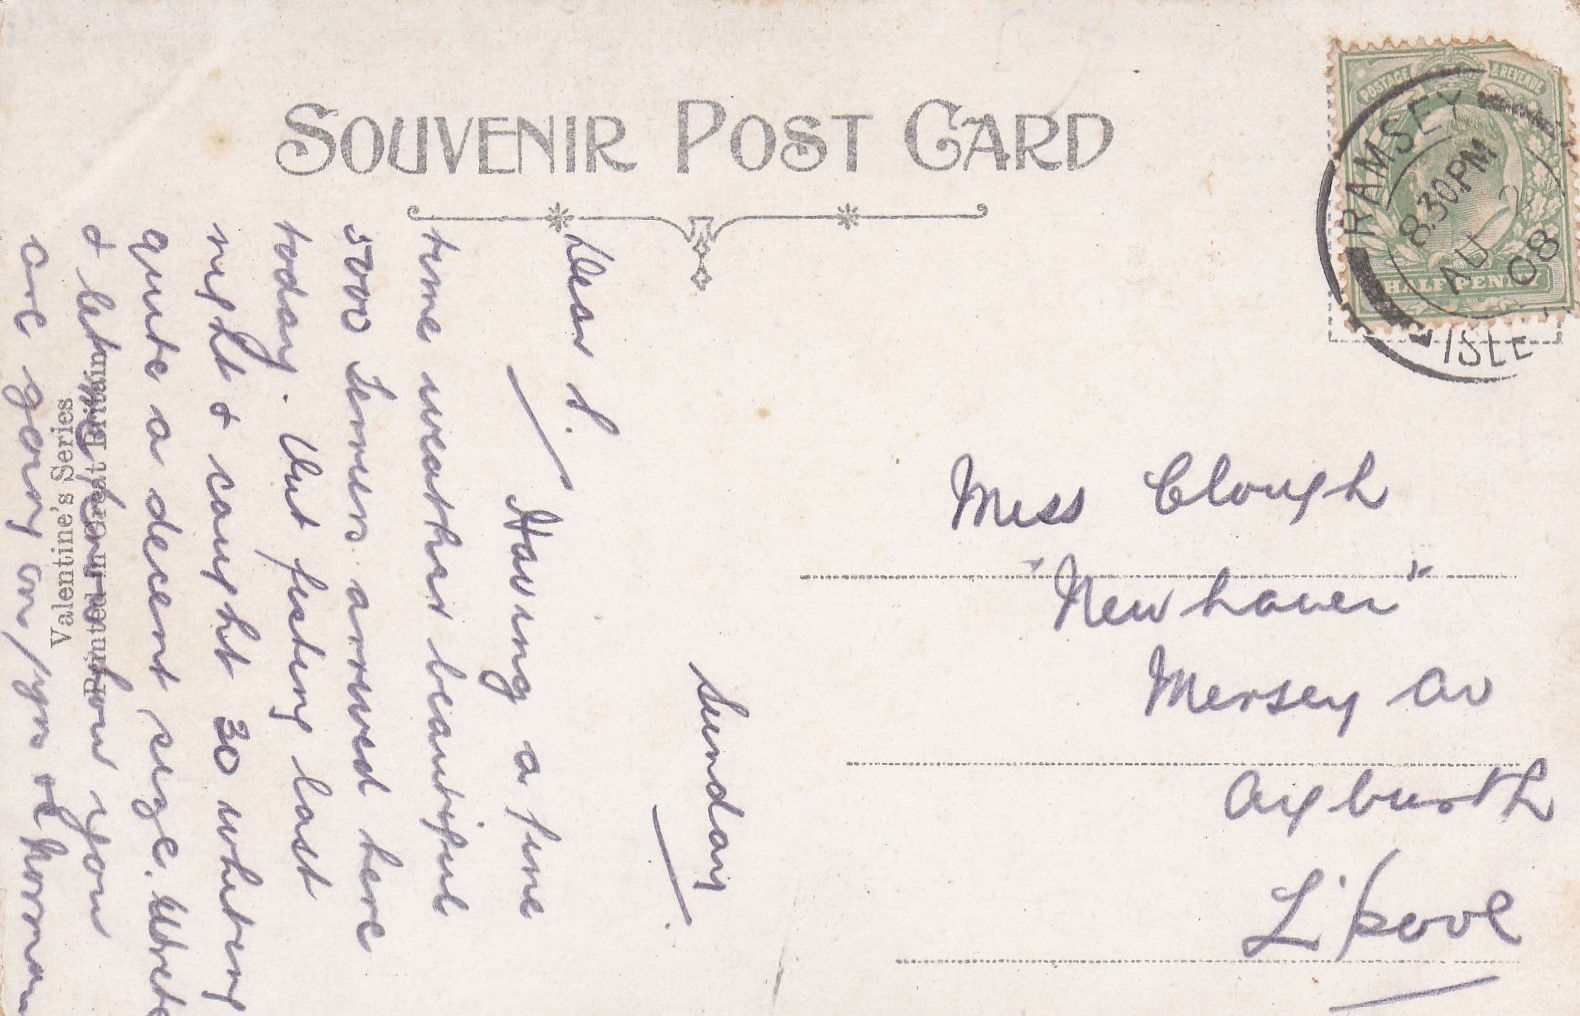 SOUVENIR POST CARD
POSTAGE & REVENUE
HALF PENNY
RAMSEY
8.30 PM
AU 2
08
ISLE
Sunday
Dear S.
Having a fine
time weather beautiful
5000 Terriers arrived here
today. Out fishing last
night & caught 30 whiting
quite a decent size. Write
& let me know how you
are going on / yrs Norman
Valentine's Series
Printed in Great Britain
Miss Clough
"Newhaven"
Mersey Av
Aigburth
L'pool